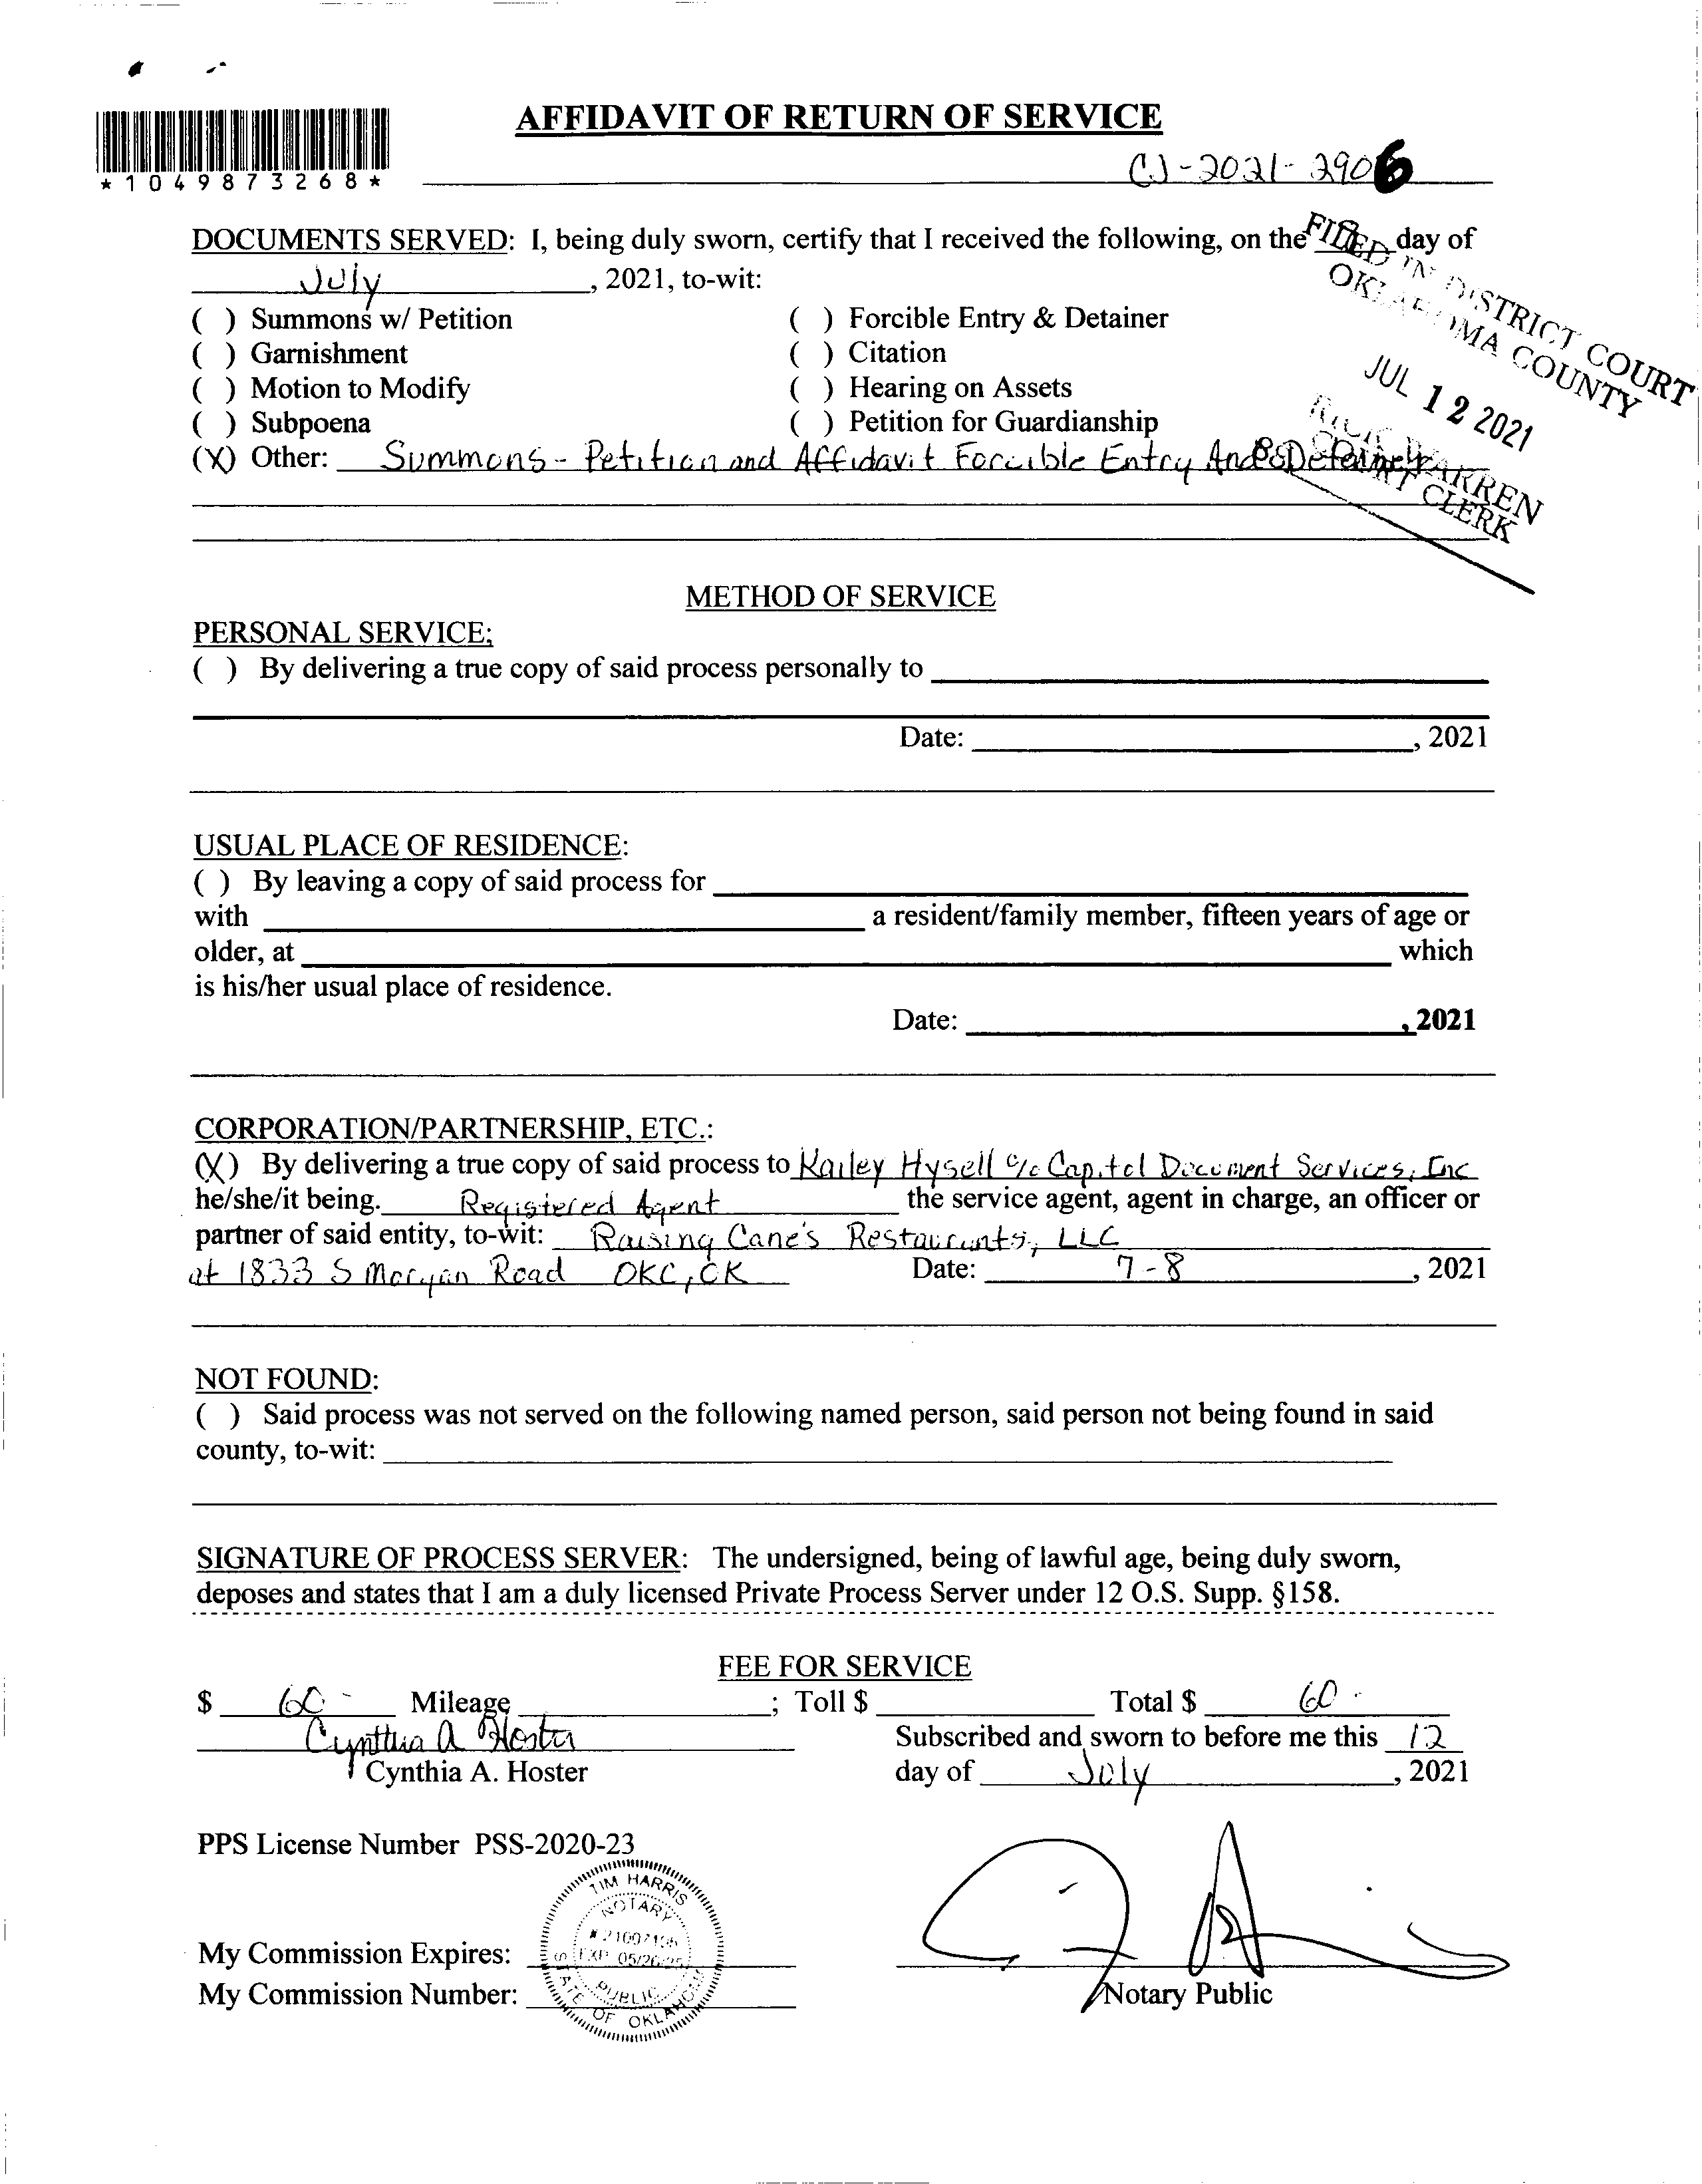 AFFIDAVIT OF RETURN OF SERVICE
*1049873268*
CJ-2021-2906
DOCUMENTS SERVED: I, being duly sworn, certify that I received the following, on the day of
July, 2021, to-wit:
FILED IN DISTRICT COURT
OKLAHOMA COUNTY
JUL 12 2021
RICK WARREN
COURT CLERK
( ) Summons w/ Petition ( ) Forcible Entry & Detainer
( ) Garnishment ( ) Citation
( ) Motion to Modify ( ) Hearing on Assets
( ) Subpoena ( ) Petition for Guardianship
(X) Other: Summons - Petition and Affidavit Forcible Entry And Detainer
METHOD OF SERVICE
PERSONAL SERVICE:
( ) By delivering a true copy of said process personally to
Date: , 2021
USUAL PLACE OF RESIDENCE:
( ) By leaving a copy of said process for
with a resident/family member, fifteen years of age or
older, at which
is his/her usual place of residence.
Date: , 2021
CORPORATION/PARTNERSHIP, ETC.:
(X) By delivering a true copy of said process to Kailey Hysell c/o Capitol Document Services, Inc
he/she/it being. Registered Agent the service agent, agent in charge, an officer or
partner of said entity, to-wit: Raising Cane's Restaurants, LLC
at 1833 S Morgan Road OKC, OK Date: 7-8, 2021
NOT FOUND:
( ) Said process was not served on the following named person, said person not being found in said
county, to-wit:
SIGNATURE OF PROCESS SERVER: The undersigned, being of lawful age, being duly sworn,
deposes and states that I am a duly licensed Private Process Server under 12 O.S. Supp. §158.
FEE FOR SERVICE
$ 60 - Mileage ; Toll $ Total $ 60 -
Cynthia A Hoster Subscribed and sworn to before me this 12
Cynthia A. Hoster day of July, 2021
PPS License Number PSS-2020-23
TIM HARRIS
NOTARY
EXP 05/26/25
PUBLIC
STATE OF OKLAHOMA
My Commission Expires:
My Commission Number: Notary Public